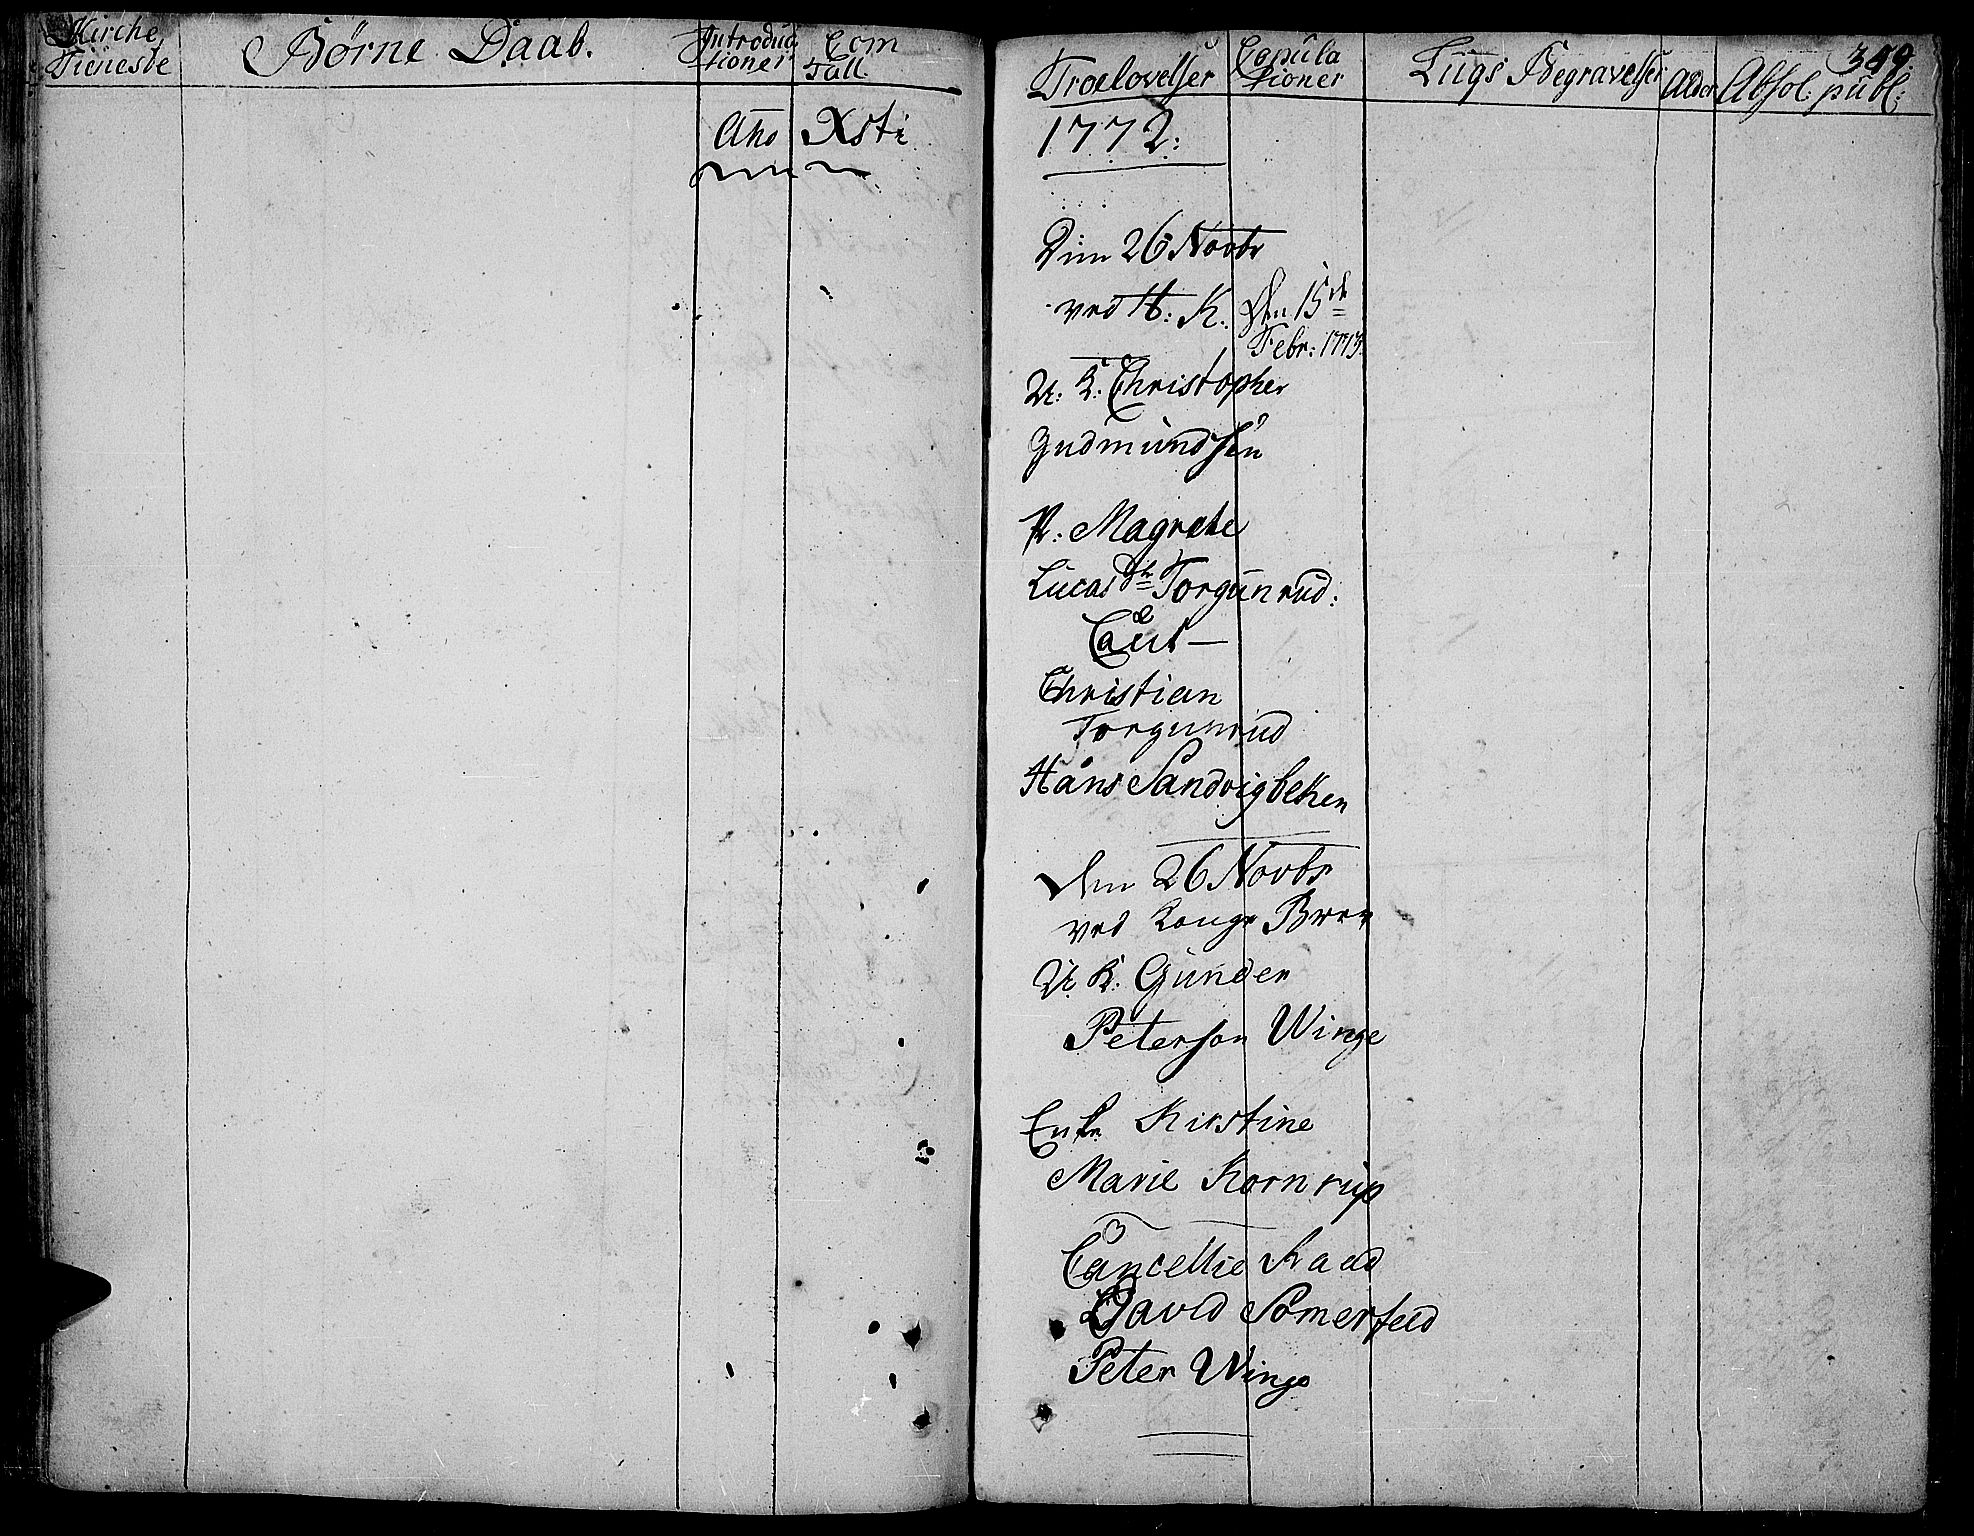 Kirche Tieneste
Børne Daab.
Introduc tioner
Com Tall.
Año Xsti
Troelovelser
Copula tioner
Liigs Begravelser
Alder
Absol: publ:
1772:
Dim 26 Novbr
ved H: K:
Den 15de
Febr: 1773
U: K: Christopher
Gudmundsen
P: Magrete
Lucas Dtr Torgunrud:
Caut
Christian
Torgunrud
Hans Sandvigbeken
Den 26 Novbr
ved Konge Brev
U. K: Gunder
Peterson Winge
Enke Kirstine
Marie Kornrup
Cancellie Raad
David Somerfeld
Peter Winge